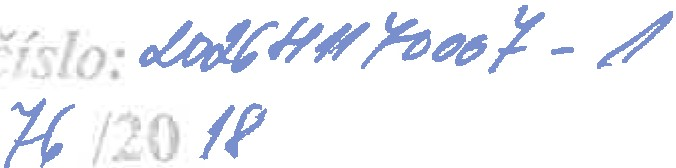 číslo: 2026H1170007 - 1
76 /20 18